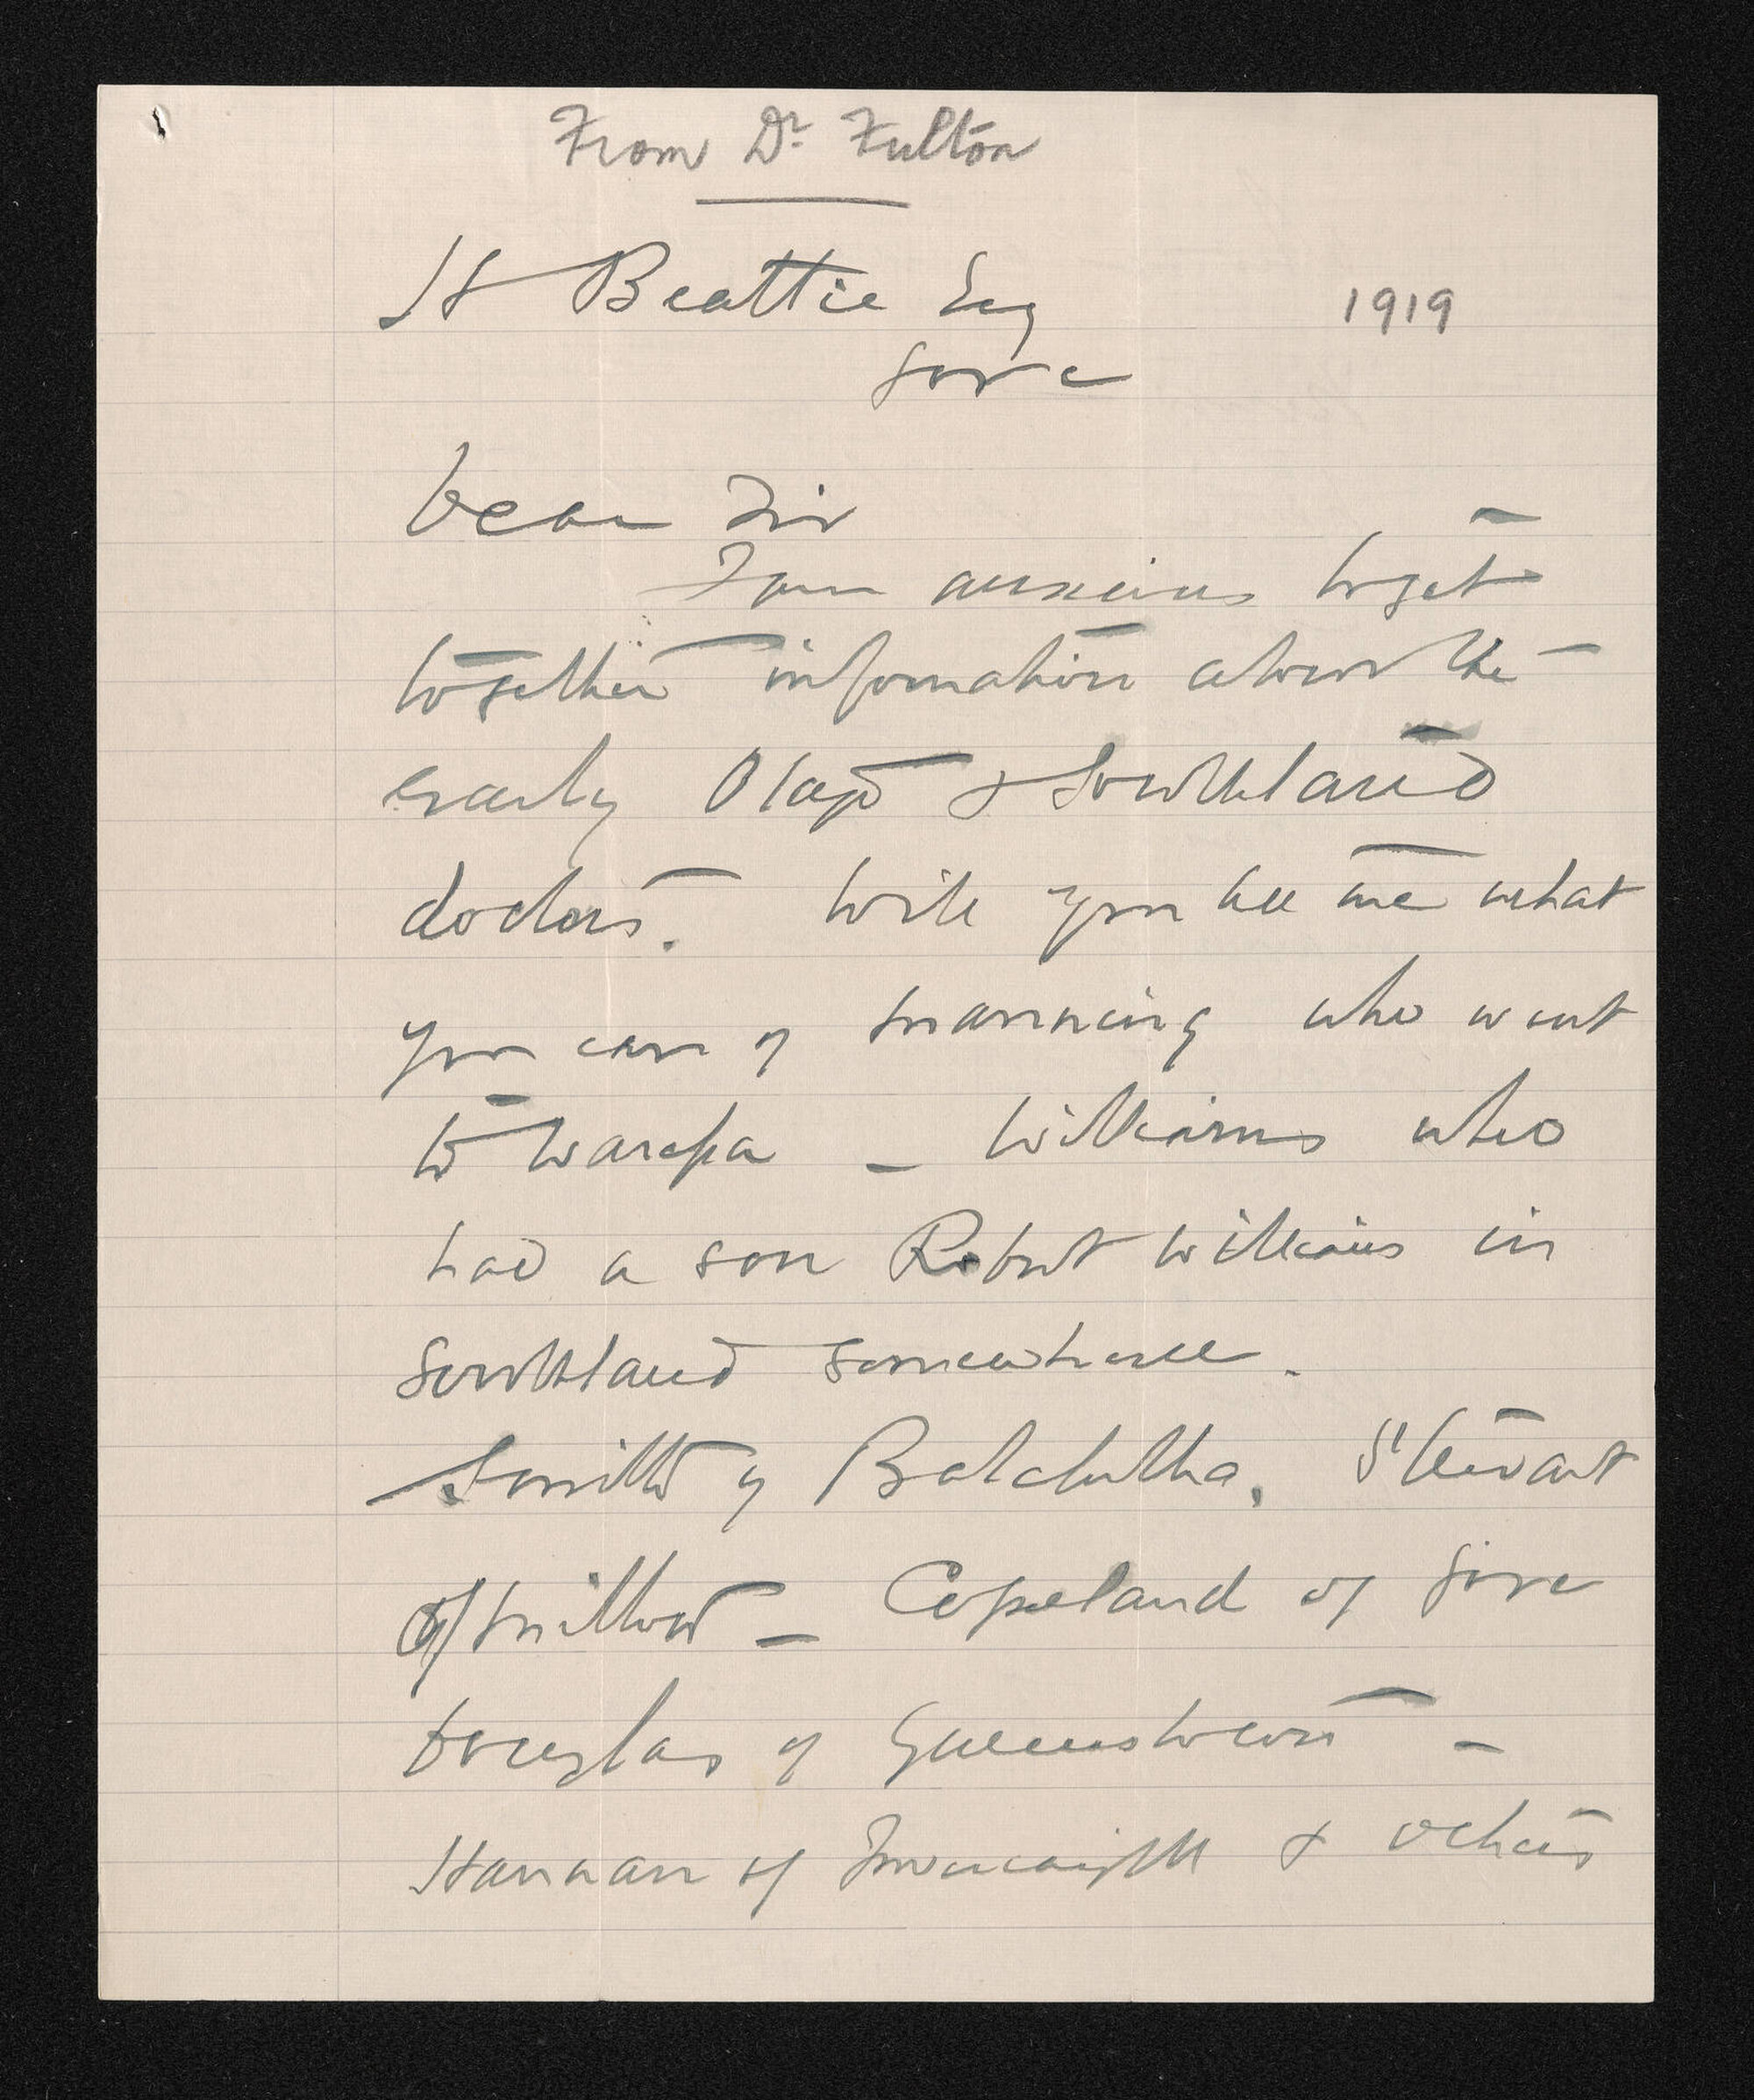 From Dr Fulton
H Beattie Esq
1919
Gore
Dear Sir
I am anxious to get
together information about the
early Otago & Southland
doctors. Will you tell me what
you can of Manning who went
to Warepa – Williams who
had a son Robert Williams in
Southland somewhere.
Smith of Balclutha. Stewart
of Milton – Copeland of Gore
Douglas of Queenstown –
Hannan of Invercargill & others